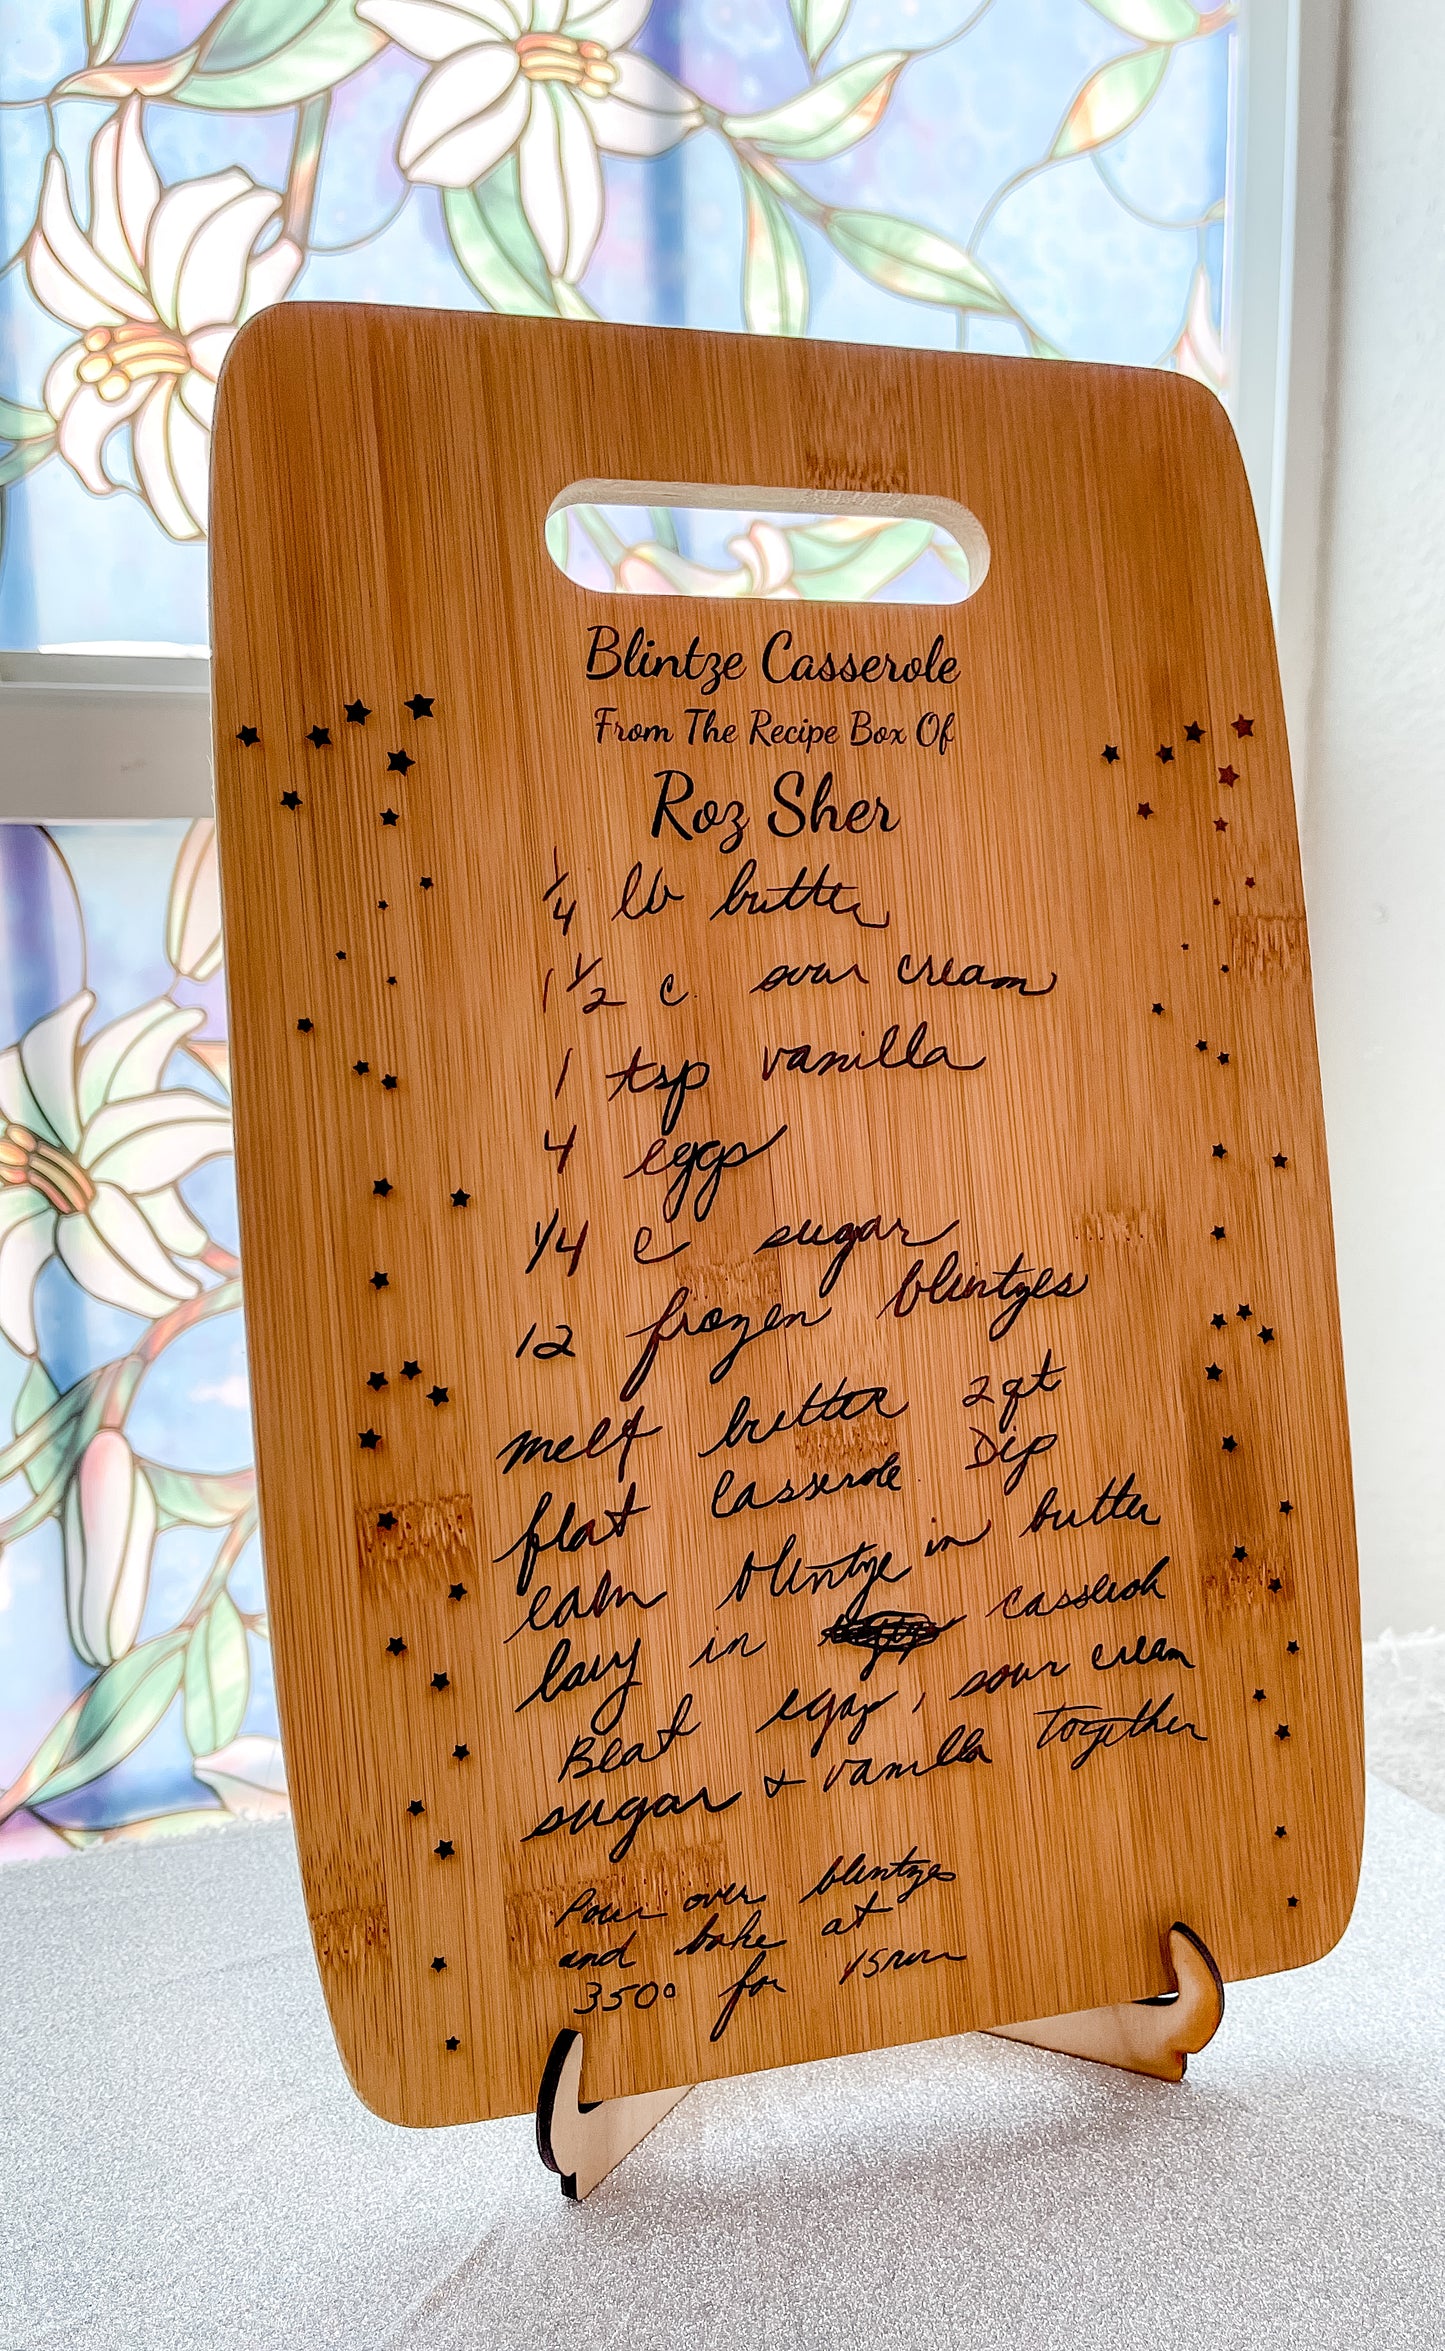 Blintze Casserole
From The Recipe Box Of
Roz Sher
1/4 lb butter
1 1/2 c. sour cream
1 tsp vanilla
4 eggs
1/4 c sugar
12 frozen blintzes
melt butter 2 qt
flat casserole. Dip
each blintze in butter
lay in casserole
Beat eggs, sour cream
sugar + vanilla together
Pour over blintzes
and bake at
350° for 45 min